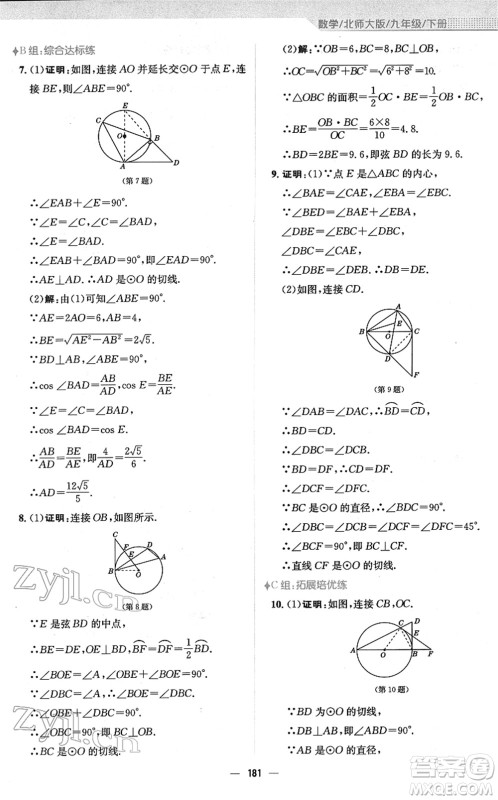 数学/北师大版/九年级/下册
B组:综合达标练
7. (1)证明:如图,连接 AO 并延长交⊙O 于点 E,连
接 BE,则∠ABE=90°.
C
E
O
B
A
D
(第 7 题)
∴∠EAB+∠E=90°.
∵∠E=∠C,∠C=∠BAD,
∴∠E=∠BAD.
∴∠EAB+∠BAD=90°,即∠EAD=90°.
∴AE⊥AD.∴AD 是⊙O 的切线.
(2)解:由(1)可知∠ABE=90°.
∵AE=2AO=6,AB=4,
∴BE=√(AE²-AB²)=2√5.
∵∠E=∠C=∠BAD,
∴cos∠BAD=AB/AD,cos E=BE/AE.
∵∠BAD=∠E,
∴cos∠BAD=cos E.
∴AB/AD=BE/AE,即4/AD=2√5/6.
∴AD=12√5/5.
8. (1)证明:连接 OB,如图所示.
C
F
D
E
A
B
O
(第 8 题)
∵E 是弦 BD 的中点,
∴BE=DE,OE⊥BD,BF=DF=1/2BD.
∴∠BOE=∠A,∠OBE+∠BOE=90°.
∵∠DBC=∠A,∴∠BOE=∠DBC.
∴∠OBE+∠DBC=90°.
∴∠OBC=90°,即 BC⊥OB.
∴BC 是⊙O 的切线.
(2)解:∵OB=6,BC=8,BC⊥OB,
∴OC=√(OB²+BC²)=√(6²+8²)=10.
∵△OBC 的面积=1/2OC·BE=1/2OB·BC,
∴BE=OB·BC/OC=6×8/10=4.8.
∴BD=2BE=9.6,即弦 BD 的长为 9.6.
9. 证明:(1)∵点 E 是△ABC 的内心,
∴∠BAE=∠CAE,∠EBA=∠EBC.
∵∠DEB=∠BAE+∠EBA,
∠DBE=∠EBC+∠DBC,∠DBC=∠EAC,
∴∠DBE=∠DEB.∴DB=DE.
(2)如图,连接 CD.
A
E
B
O
C
D
F
(第 9 题)
∵∠DAB=∠DAC,∴BD=CD.
∴BD=CD.
∵BD=DF,∴CD=DB=DF.
∴∠DBC=∠DCB,
∠DCF=∠DFC.
∴∠BCF=90°.∴BC⊥CF.
∴直线 CF 是⊙O 的切线.
C组:拓展培优练
10. (1)证明:如图,连接 CB,OC.
C
E
A
O
B
F
(第 10 题)
∵BD 为⊙O 的切线,
∴BD⊥AB.
181